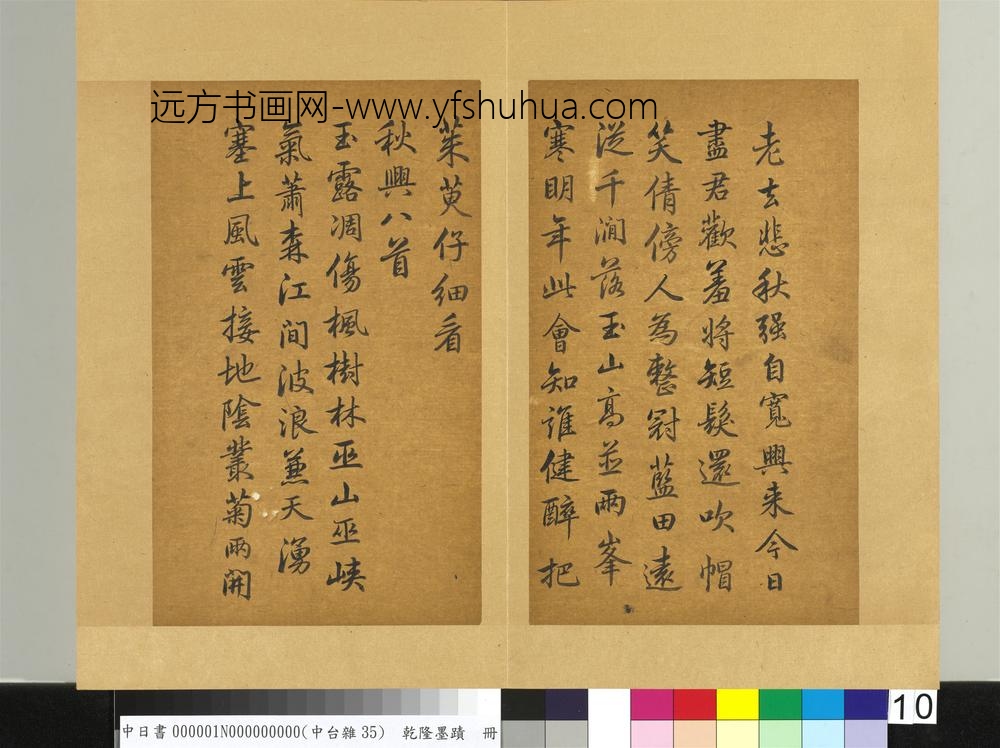 远方书画网-www.yfshuhua.com
老去悲秋强自寬興来今日
盡君歡羞將短髮還吹帽
笑倩傍人為整冠藍田遠
從千澗落玉山高並兩峯
寒明年此會知誰健醉把
茱萸仔細看
秋興八首
玉露凋傷楓樹林巫山巫峽
氣蕭森江間波浪兼天湧
塞上風雲接地陰叢菊兩開
10
中日書 000001N000000000(中台雜35) 乾隆墨蹟 冊